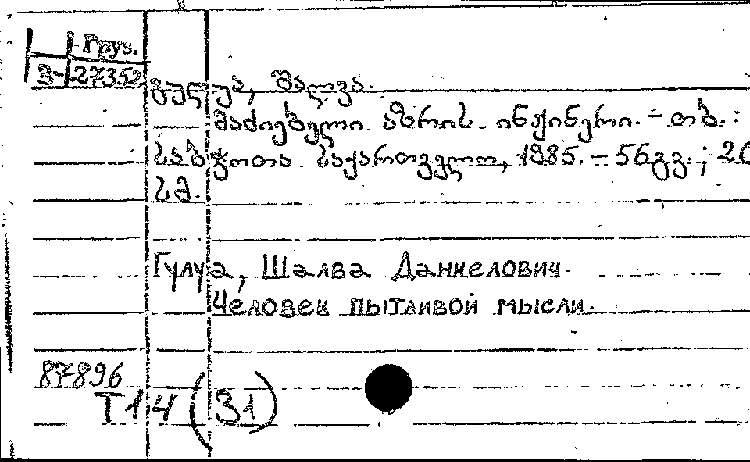 Груз.
3-27352
გულუა, შალვა.
მაძიებელი აზრის ინჟინერი. – თბ. :
საბჭოთა საქართველო, 1985. – 56 გვ. ; 20
სმ.
Гулуа, Шалва Данкелович.
Человек пытливой мысли.
87896
Т14 (31)